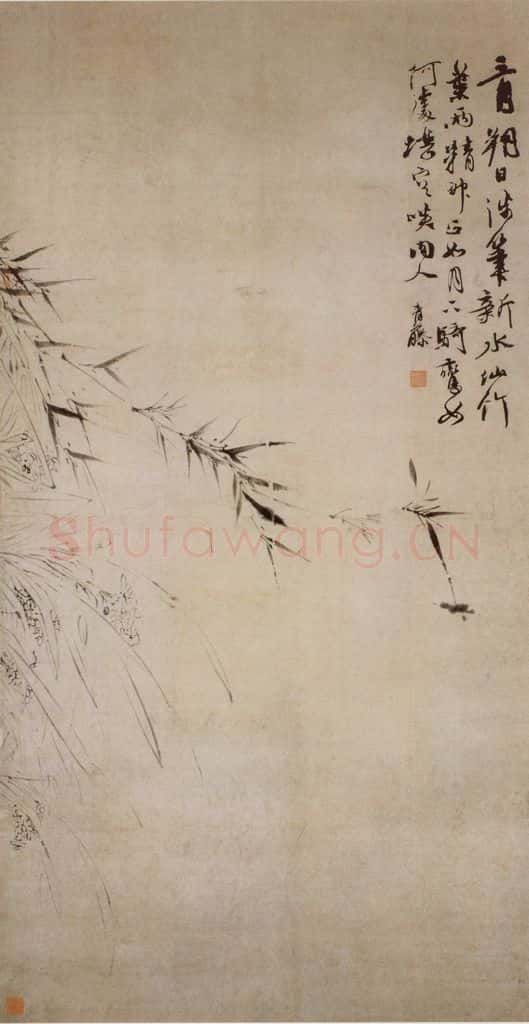 月朔日涉筆新水仙竹
葉兩精神正如月下騎鸞女
何處堪容啖肉人
青藤
Shufawang.CN